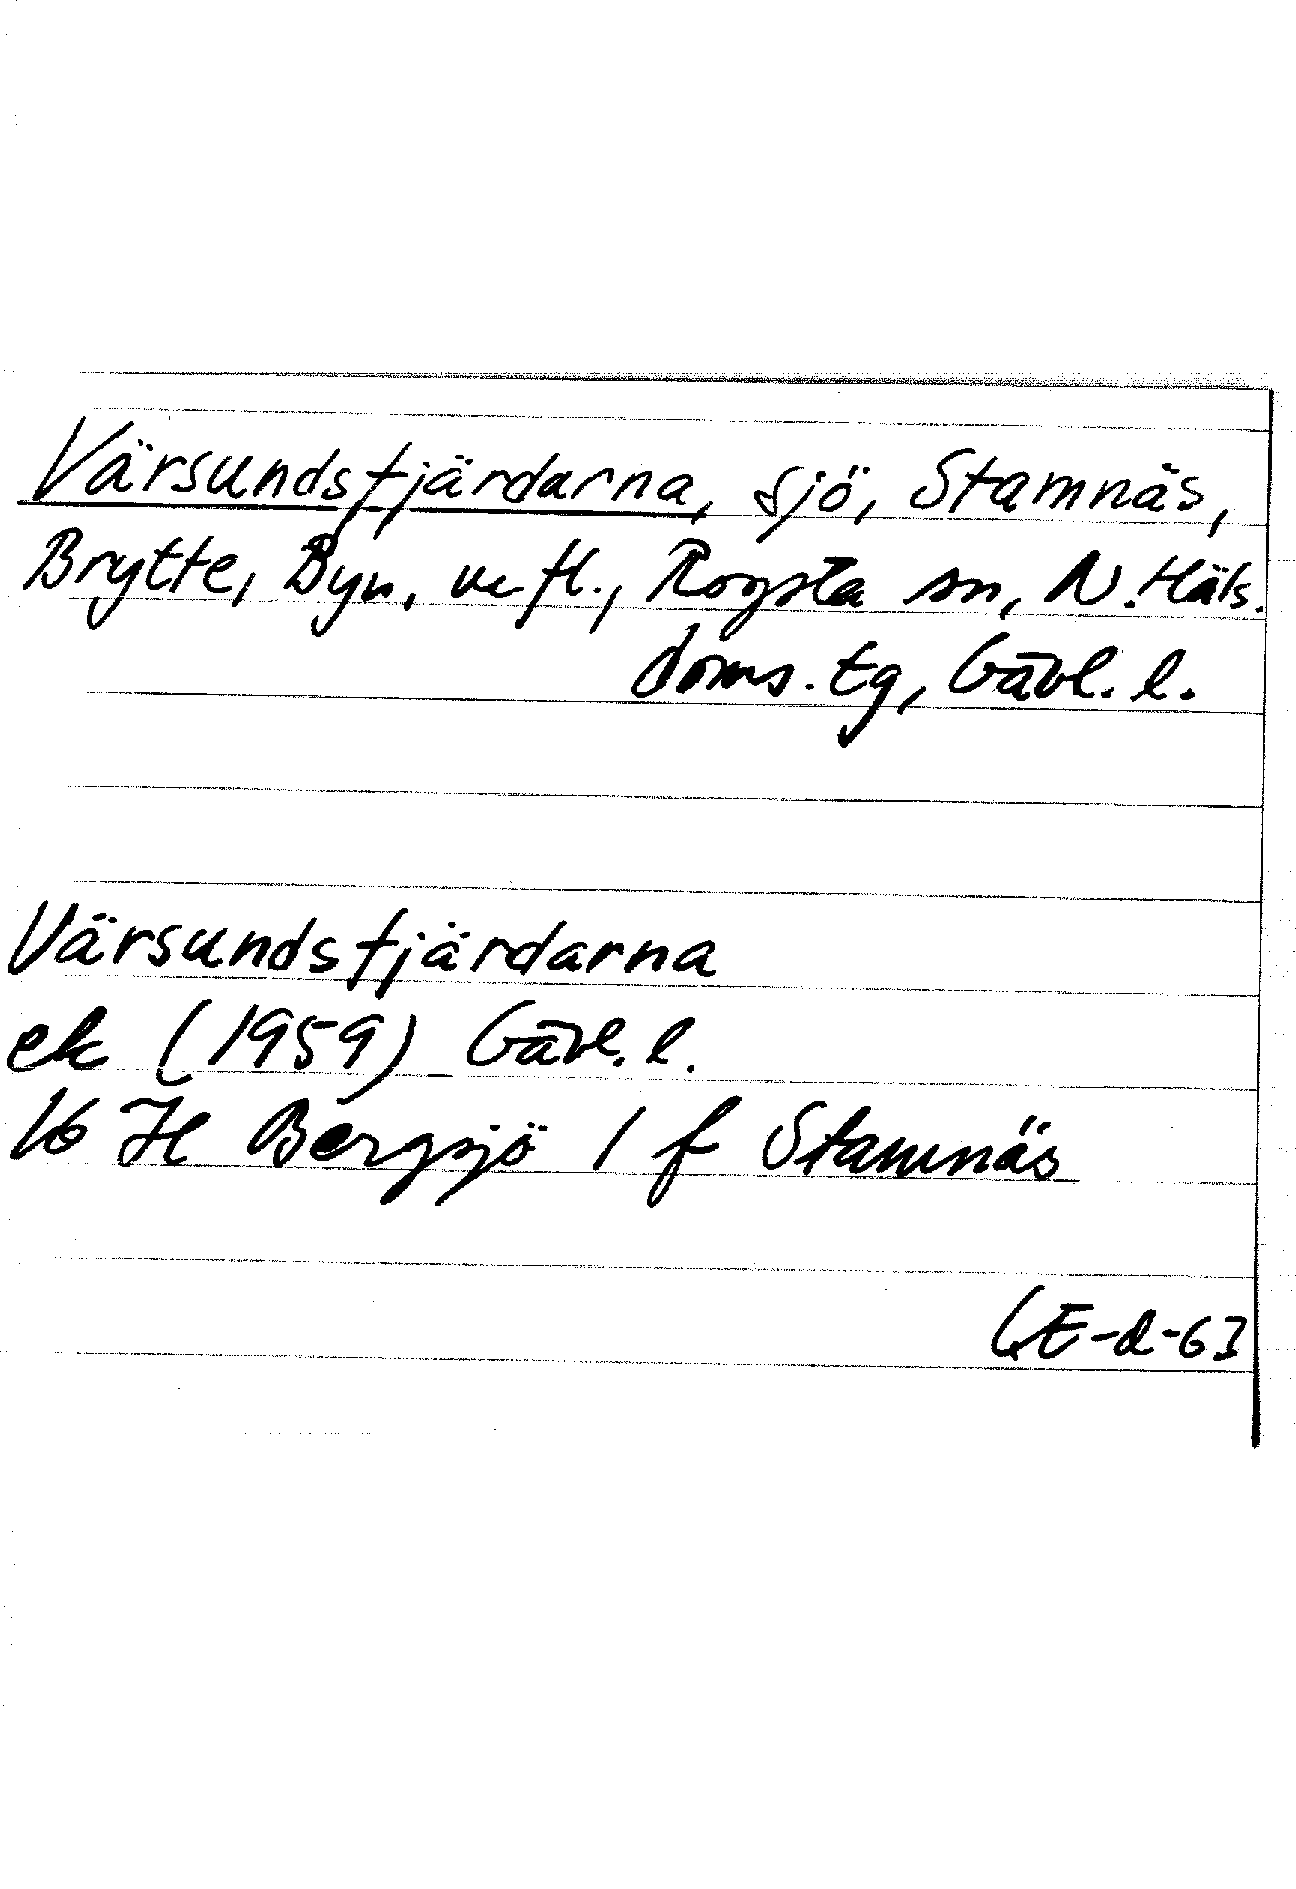 Värsundsfjärdarna, sjö, Stamnäs,
Brytte, Byn, m fl., Rogsta sn, N. Häls.
doms. tg, Gävl. l.
Värsundsfjärdarna
ek (1959) Gävl. l.
16 H Bergsjö 1 f Stamnäs
E-d-63